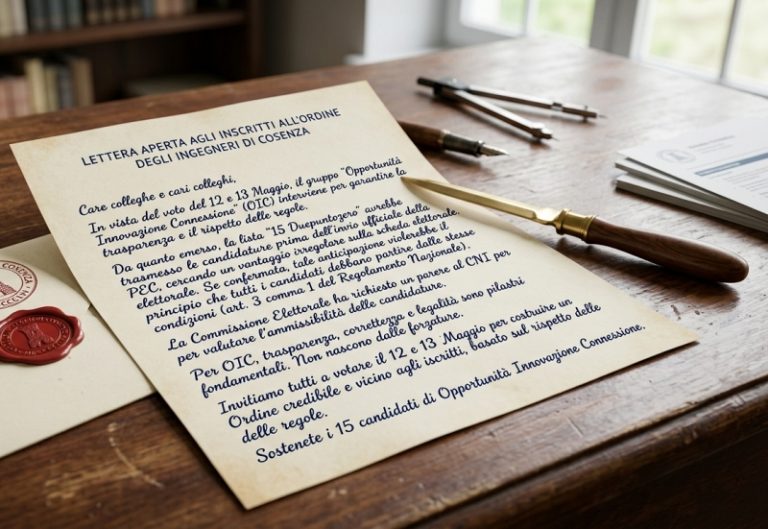 LETTERA APERTA AGLI INSCRITTI ALL'ORDINE
DEGLI INGEGNERI DI COSENZA
Care colleghe e cari colleghi,
In vista del voto del 12 e 13 Maggio, il gruppo "Opportunità
Innovazione Connessione" (OIC) interviene per garantire la
trasparenza e il rispetto delle regole.
Da quanto emerso, la lista "15 Duepuntozero" avrebbe
trasmesso le candidature prima dell'invio ufficiale della
PEC, cercando un vantaggio irregolare sulla scheda elettorale.
elettorale. Se confermata, tale anticipazione violerebbe il
principio che tutti i candidati debbano partire dalle stesse
condizioni (art. 3 comma 1 del Regolamento Nazionale).
La Commissione Elettorale ha richiesto un parere al CNI per
per valutare l'ammissibilità delle candidature.
Per OIC, trasparenza, correttezza e legalità sono pilastri
fondamentali. Non nascono dalle forzature.
Invitiamo tutti a votare il 12 e 13 Maggio per costruire un
Ordine credibile e vicino agli iscritti, basato sul rispetto delle
delle regole.
Sostenete i 15 candidati di Opportunità Innovazione Connessione.